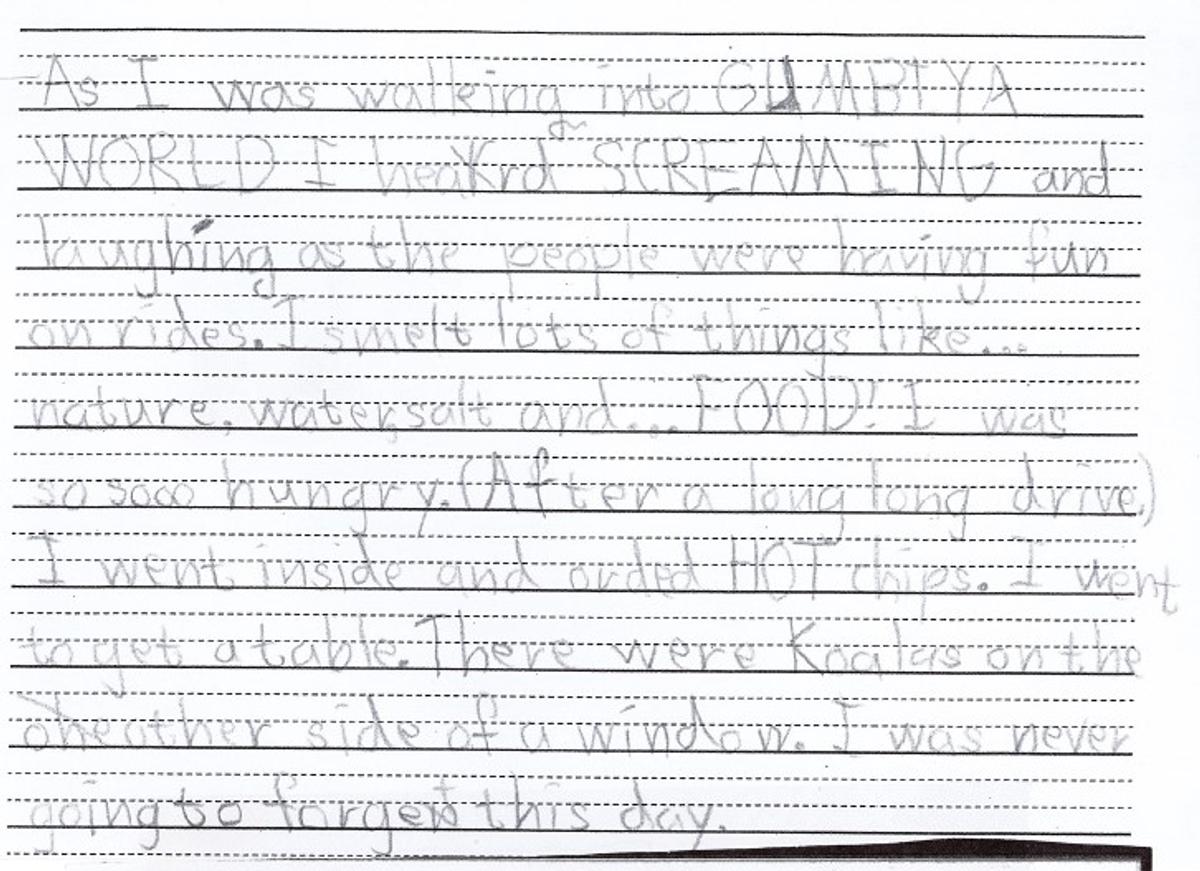 As I was walking into GUMBIYA
WORLD I heard SCREAMING and
laughing as the people were having fun
on rides. I smelt lots of things like...
nature, water, salt and.... FOOD! I was
so sooo hungry. (After a long long drive.)
I went inside and orded HOT chips. I went
to get a table. There were Koalas on the
other side of a window. I was never
going to forget this day.